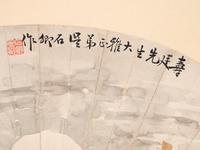 壽廷先生大雅正弟吳石卿作